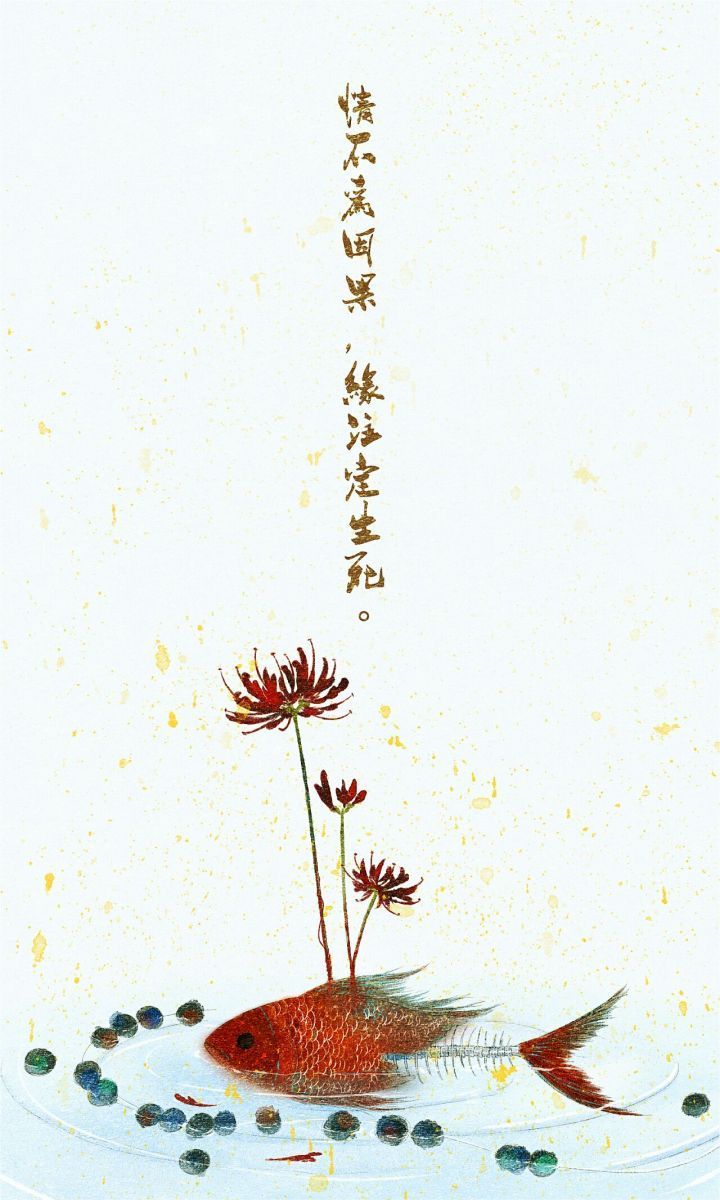 情不為因果，緣注定生死。